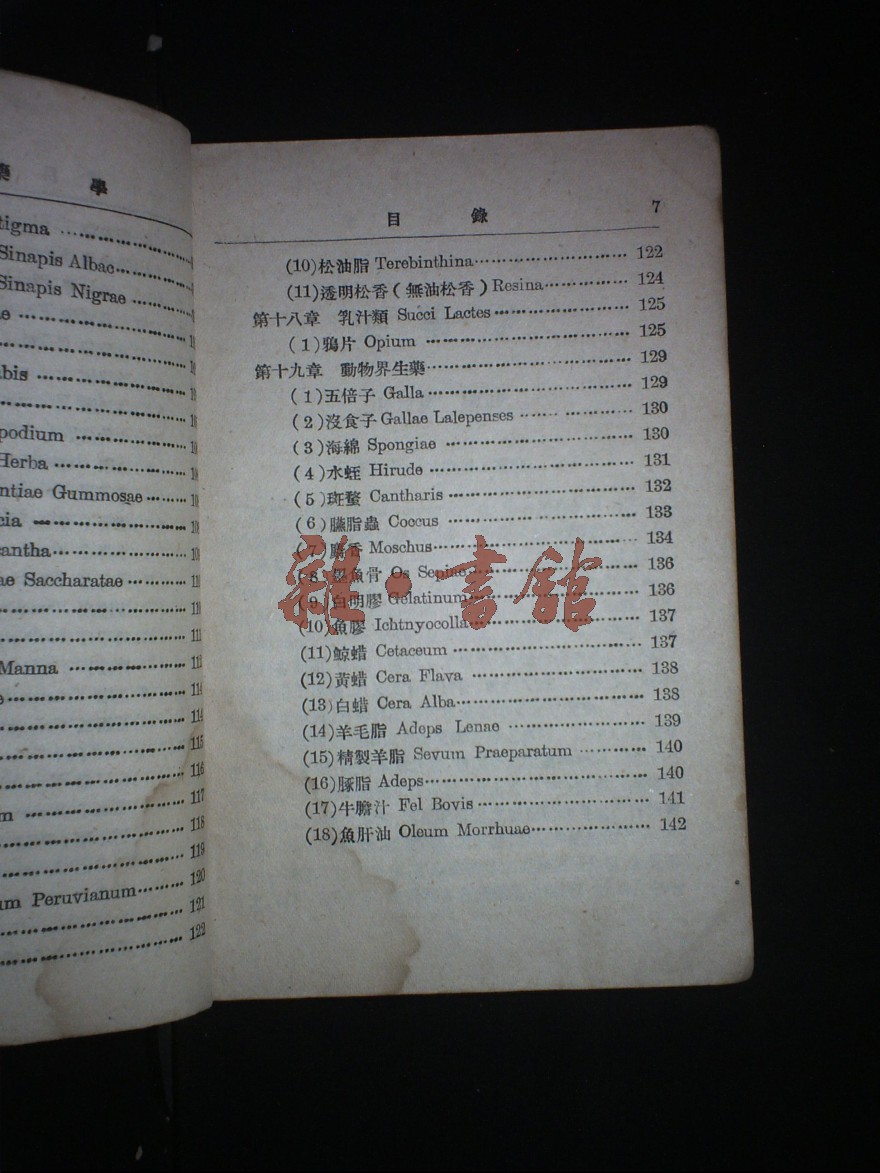 學
tigma
Sinapis Albae
Sinapis Nigrae
podium
Herba
ntiae Gummosae
cantha
ae Saccharatae
110
111
Manna 112
114
114
115
116
117
118
119
um Peruvianum 120
121
122
目錄 7
(10)松油脂 Terebinthina 122
(11)透明松香(無油松香)Resina 124
第十八章 乳汁類 Succi Lactes 125
(1)鴉片 Opium 125
第十九章 動物界生藥 129
(1)五倍子 Galla 129
(2)沒食子 Gallae Lalepenses 130
(3)海綿 Spongiae 130
(4)水蛭 Hirude 131
(5)斑蝥 Cantharis 132
(6)臙脂蟲 Coccus 133
(7)麝香 Moschus 134
(8)墨魚骨 Os Sepiae 136
(9)白明膠 Gelatinum 136
(10)魚膠 Ichtnyocolla 137
(11)鯨蜡 Cetaceum 137
(12)黃蜡 Cera Flava 138
(13)白蜡 Cera Alba 138
(14)羊毛脂 Adeps Lenae 139
(15)精製羊脂 Sevum Praeparatum 140
(16)豚脂 Adeps 140
(17)牛膽汁 Fel Bovis 141
(18)魚肝油 Oleum Morrhuae 142
雜·書館